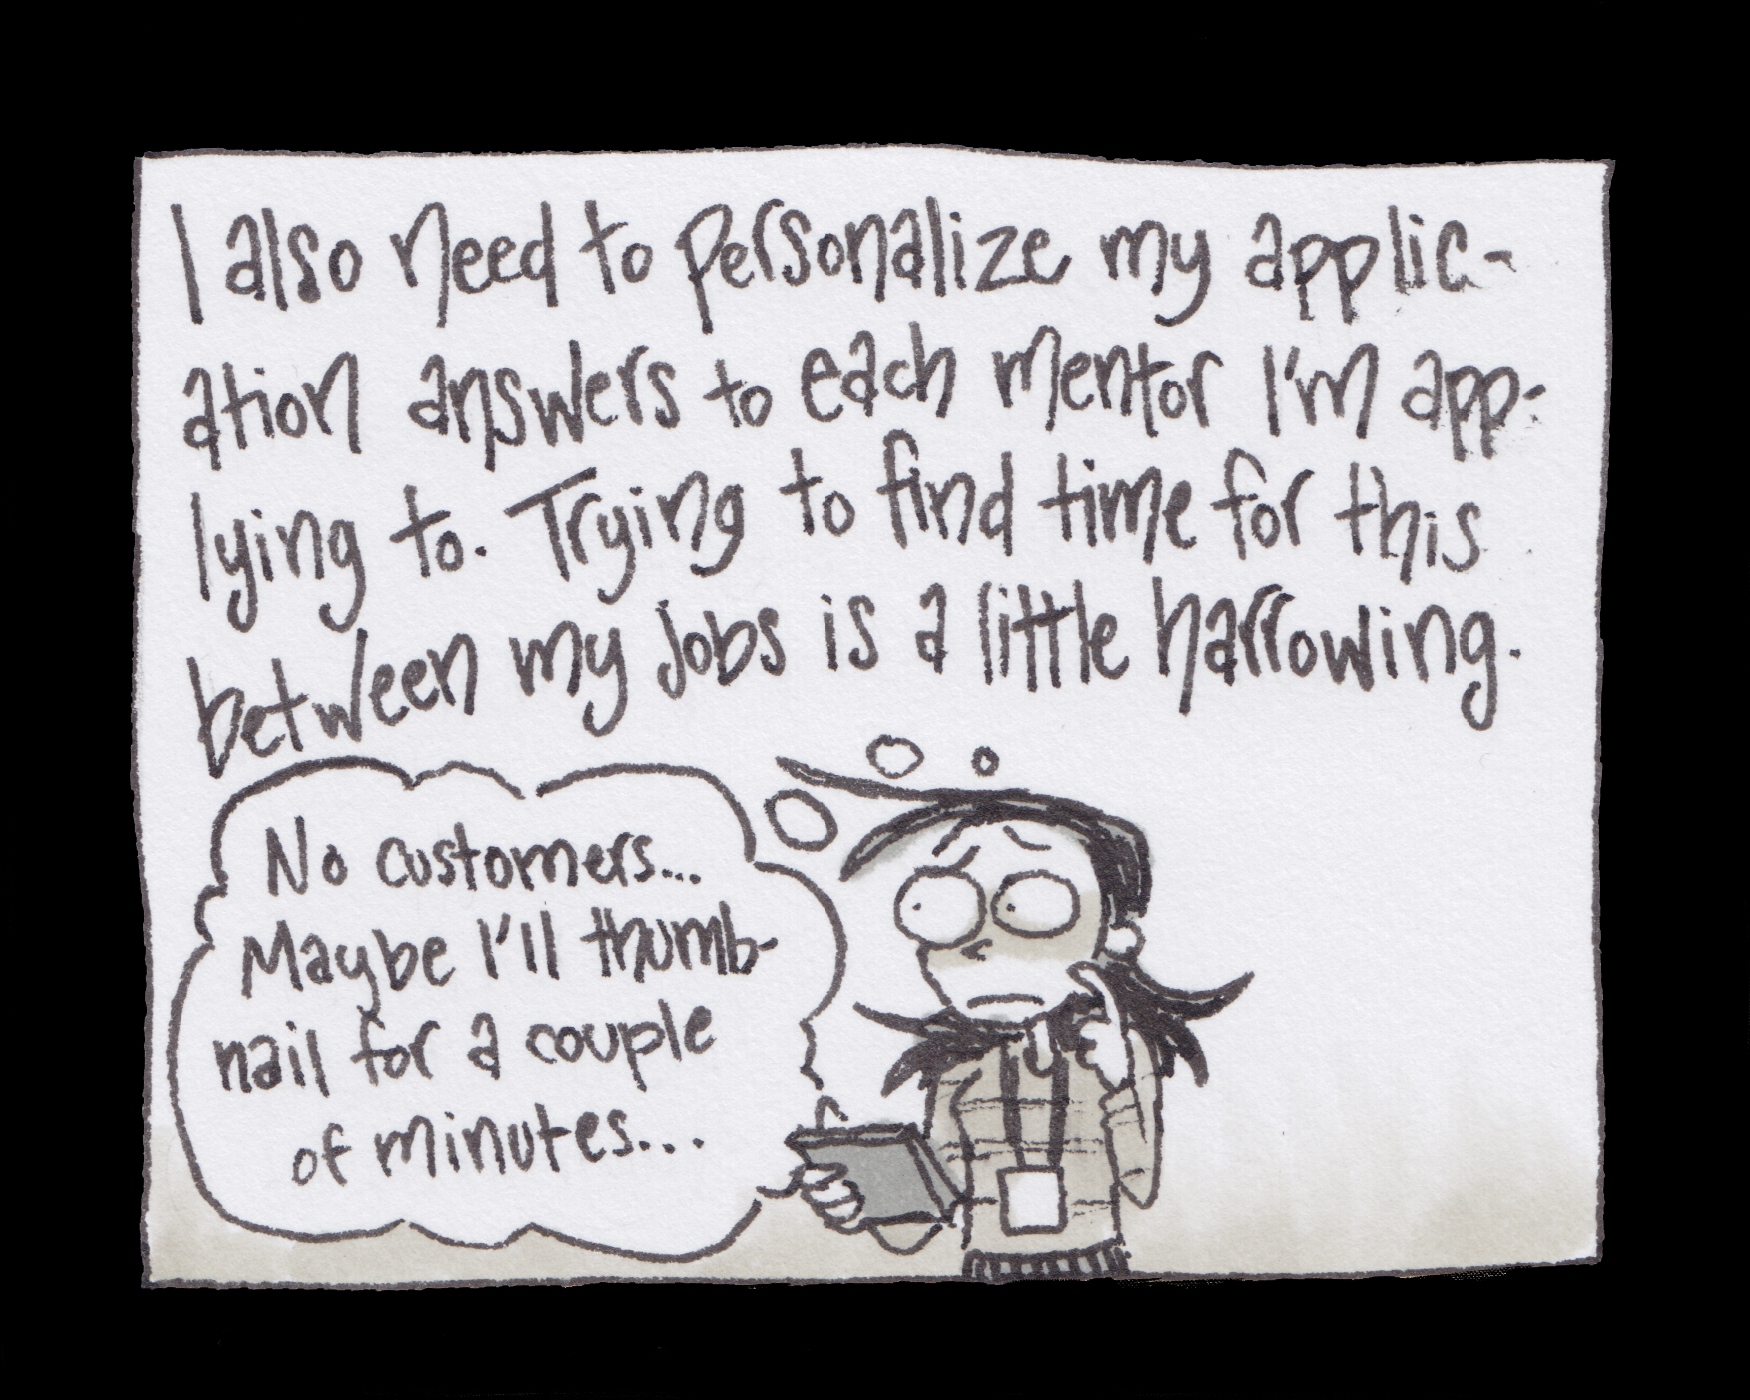 I also need to personalize my applic-
ation answers to each mentor I'm app-
lying to. Trying to find time for this
between my jobs is a little harrowing.
No customers...
Maybe I'll thumb-
nail for a couple
of minutes...